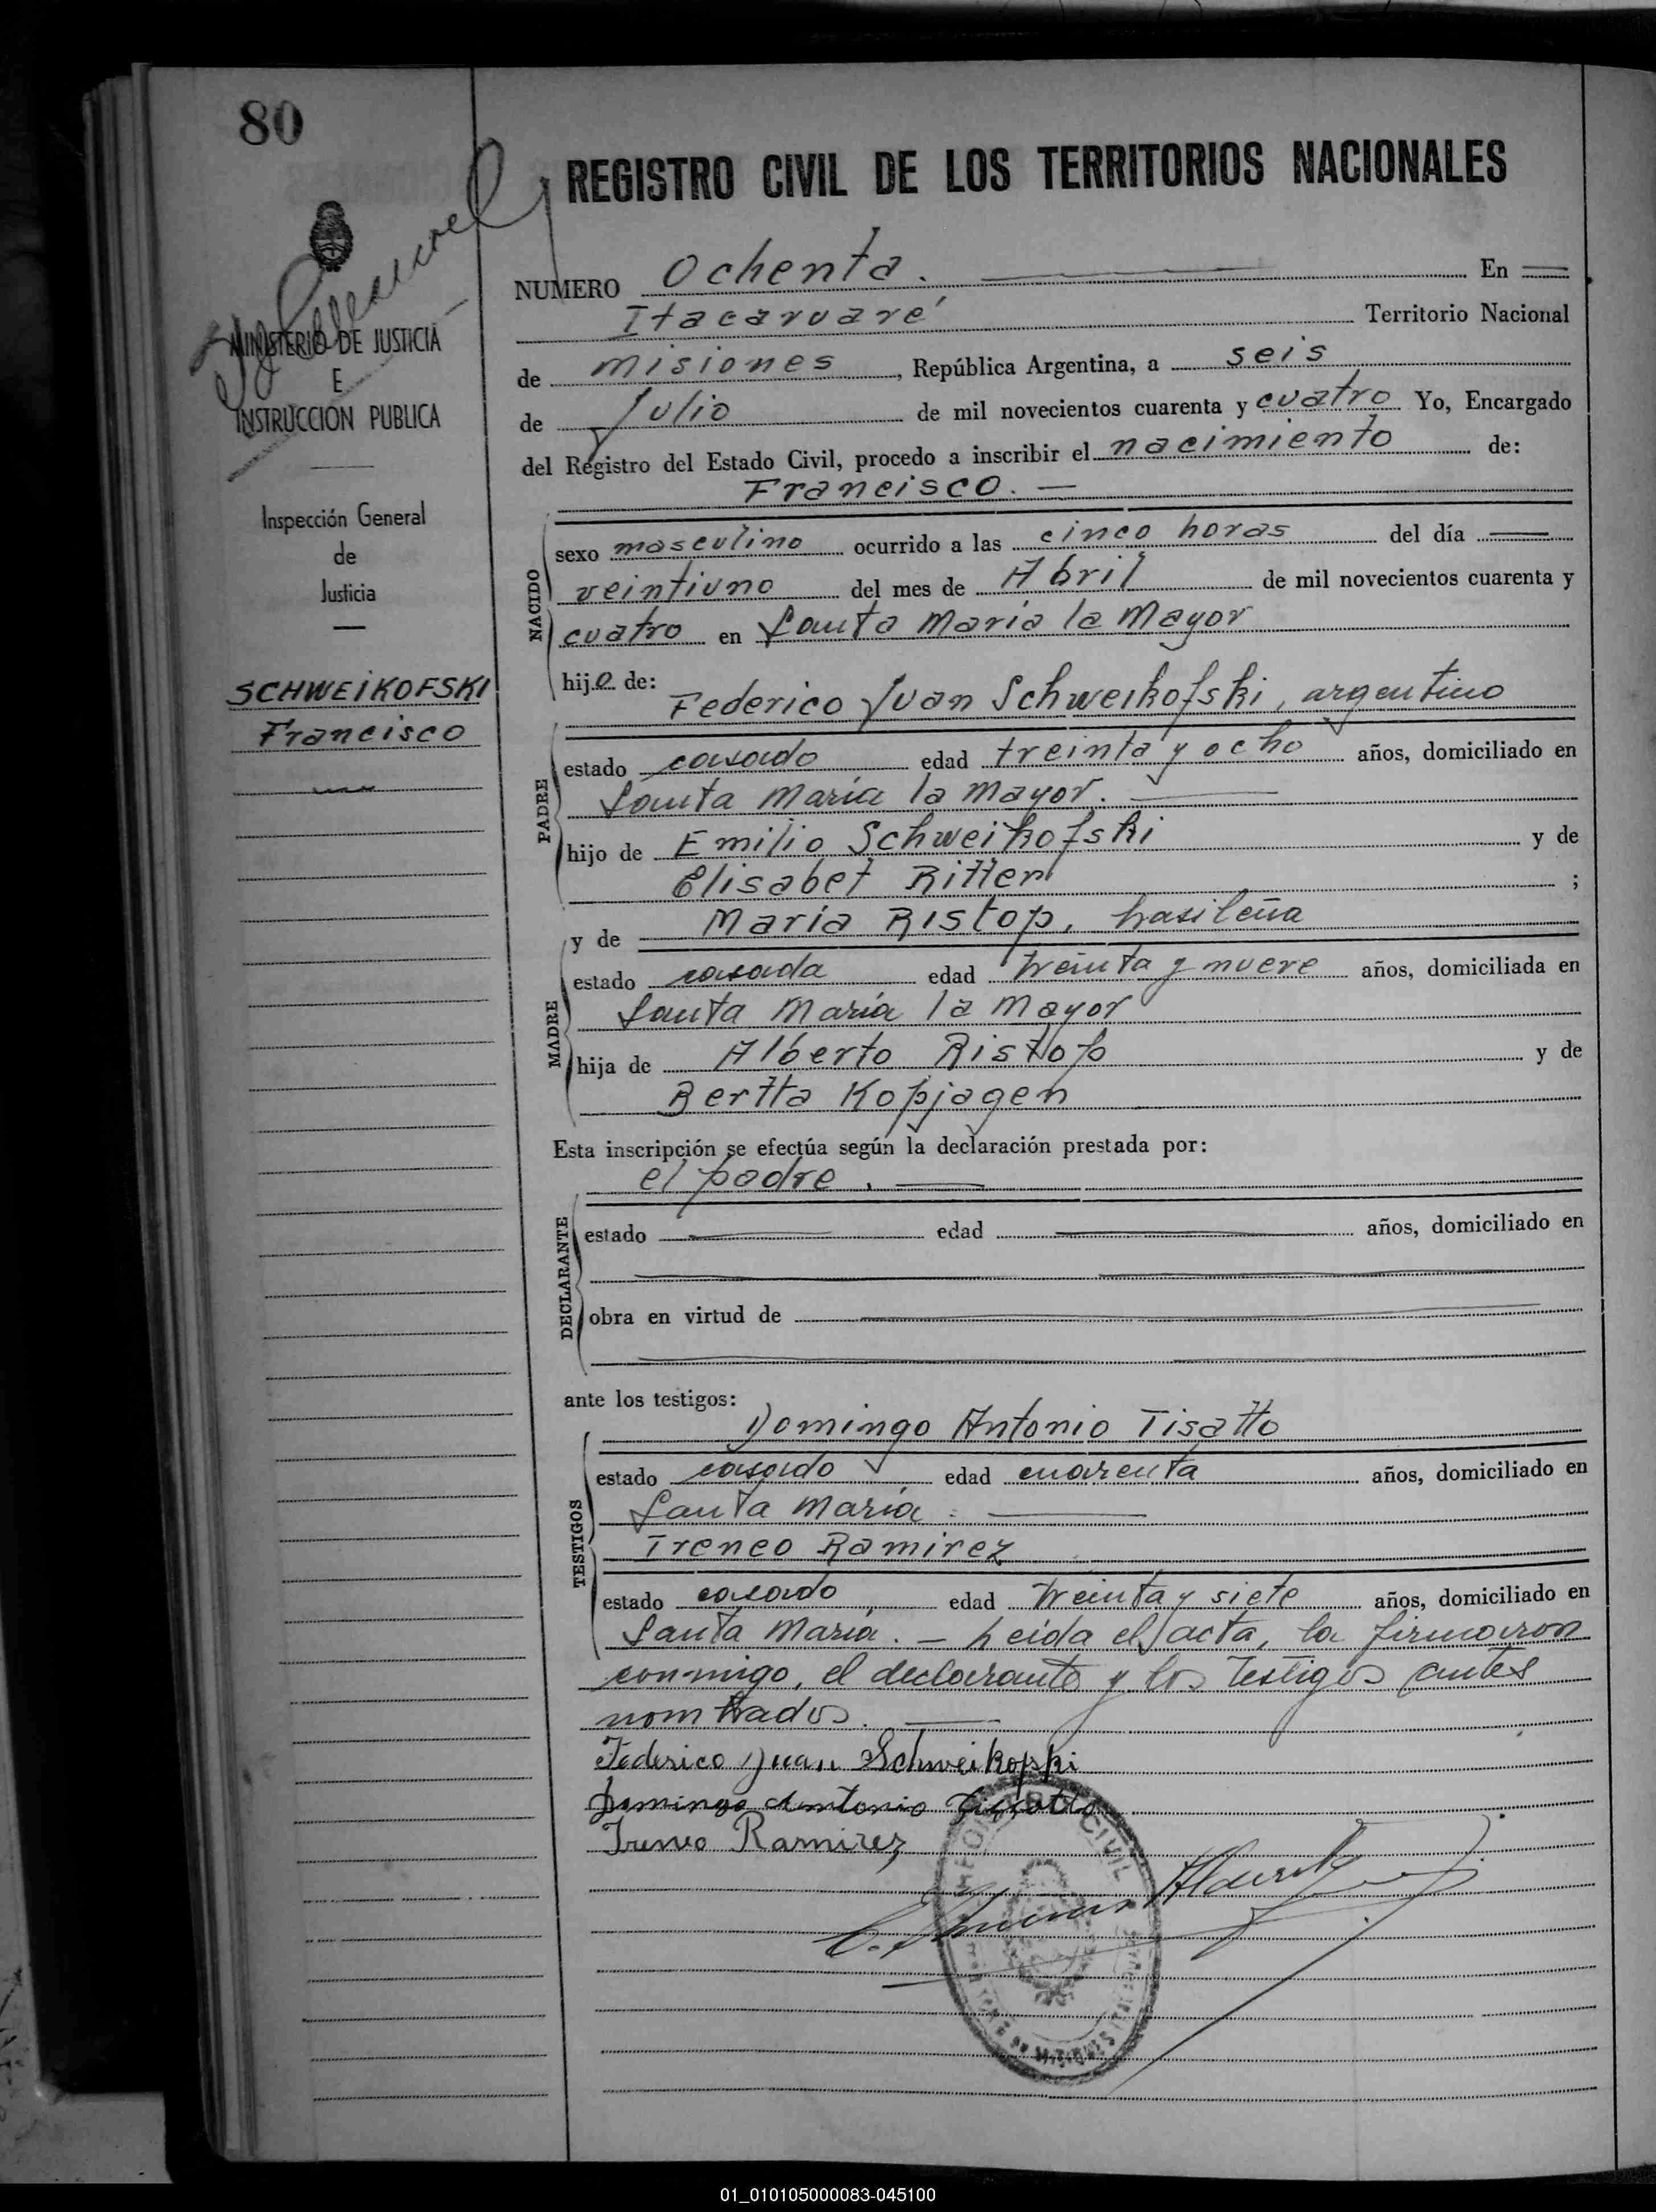 80
REGISTRO CIVIL DE LOS TERRITORIOS NACIONALES
MINISTERIO DE JUSTICIA
E
INSTRUCCION PUBLICA
Inspección General
de
Justicia
SCHWEIKOFSKI
Francisco
NUMERO Ochenta. En
Itacaruaré Territorio Nacional
de Misiones, República Argentina, a seis
de Julio de mil novecientos cuarenta y cuatro Yo, Encargado
del Registro del Estado Civil, procedo a inscribir el nacimiento de:
Francisco. —
NACIDO
sexo masculino ocurrido a las cinco horas del día
veintiuno del mes de Abril de mil novecientos cuarenta y
cuatro en Santa María la Mayor
hijo de:
Federico Juan Schweikofski, argentino
PADRE
estado casado edad treinta y ocho años, domiciliado en
Santa María la Mayor.
hijo de Emilio Schweikofski y de
Elisabet Ritter ;
y de María Ristop, brasileña
MADRE
estado casada edad treinta y nueve años, domiciliada en
Santa María la Mayor
hija de Alberto Ristop y de
Bertta Kopjagen
Esta inscripción se efectúa según la declaración prestada por:
el padre.
DECLARANTE
estado edad años, domiciliado en
obra en virtud de
ante los testigos:
Domingo Antonio Tisatto
TESTIGOS
estado casado edad cuarenta años, domiciliado en
Santa María.
Ireneo Ramirez
estado casado edad treinta y siete años, domiciliado en
Santa María. — Leída el acta, la firmaron
conmigo, el declarante y los testigos antes
nombrados.
Federico Juan Schweikofski
Domingo Antonio Tissatto
Ireneo Ramirez
CIVIL
01_010105000083-045100